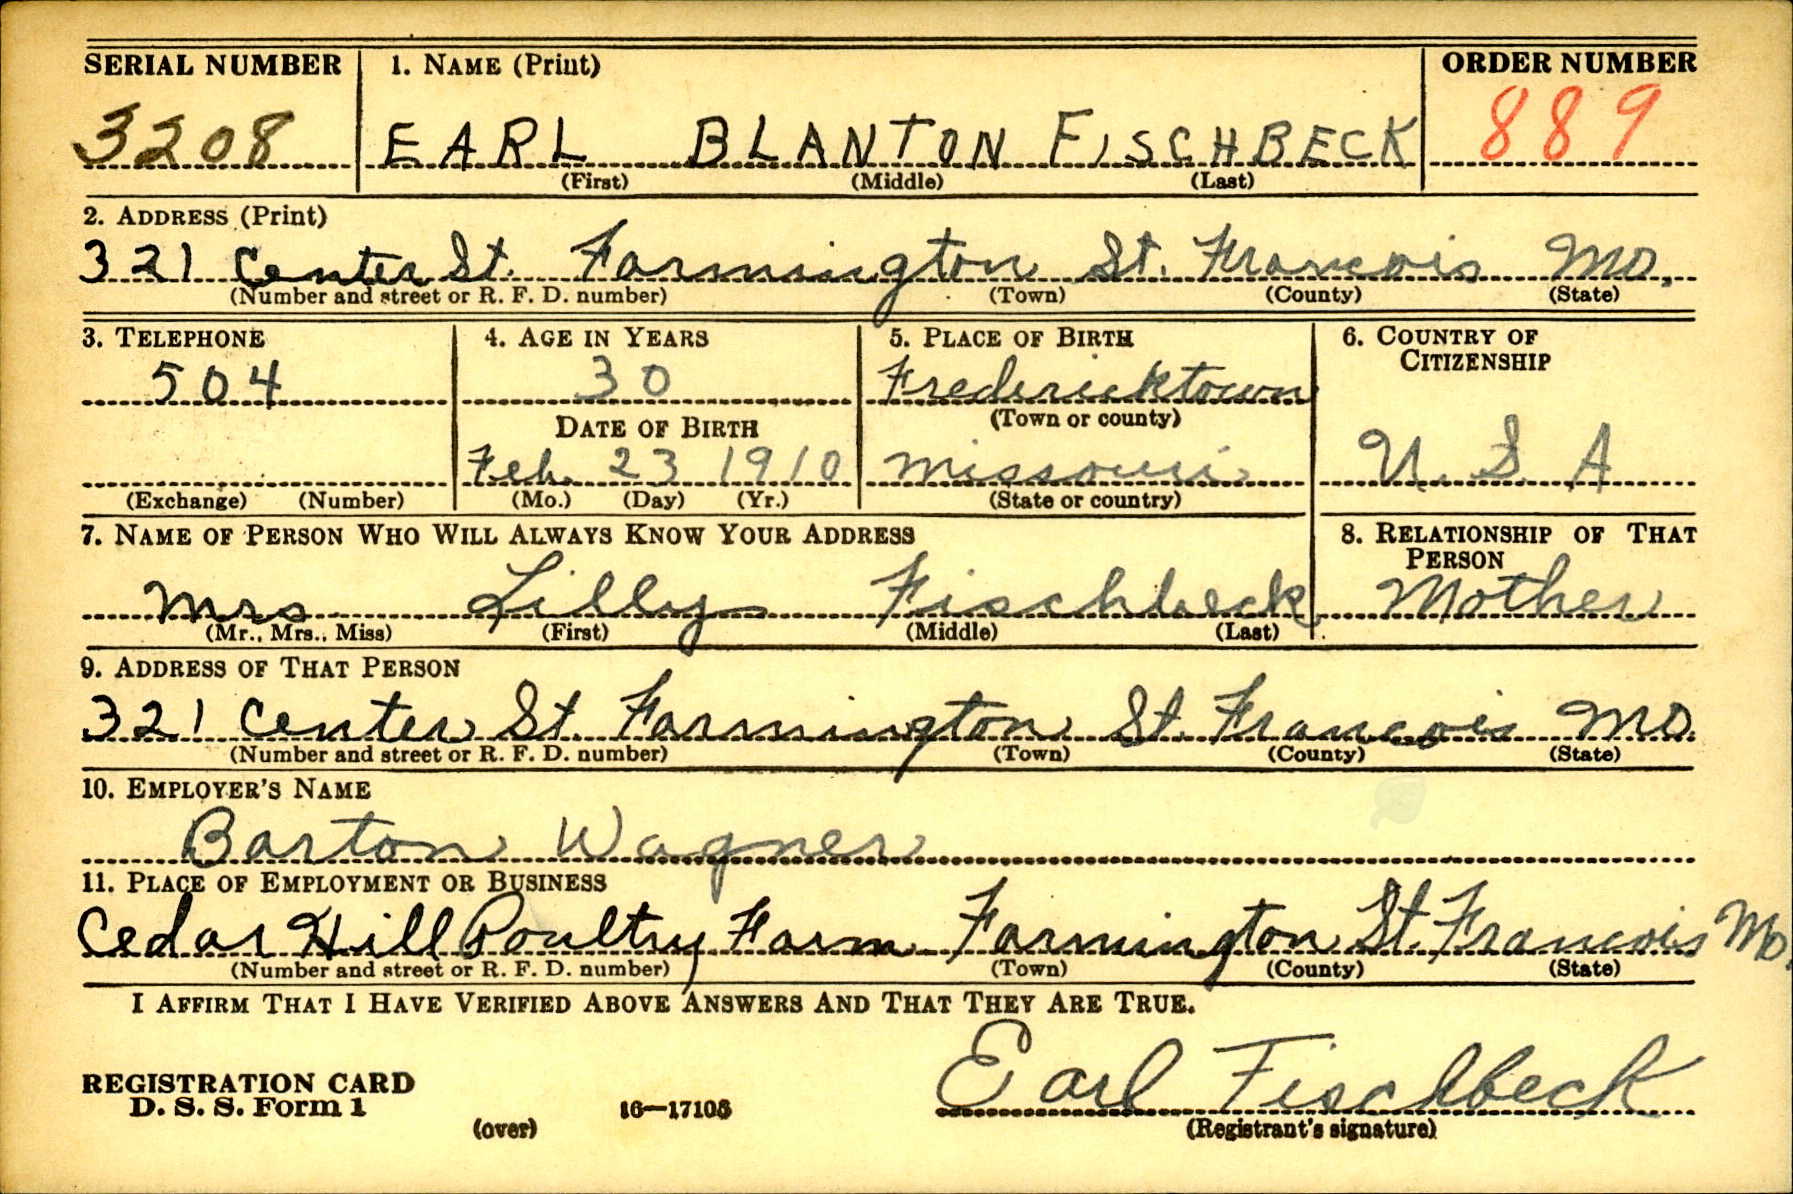 SERIAL NUMBER 1. NAME (Print) ORDER NUMBER
3208 EARL BLANTON FISCHBECK 889
(First) (Middle) (Last)
2. ADDRESS (Print)
321 Center St. Farmington St. Francois Mo.
(Number and street or R. F. D. number) (Town) (County) (State)
3. TELEPHONE 4. AGE IN YEARS 5. PLACE OF BIRTH 6. COUNTRY OF
CITIZENSHIP
504 30 Fredericktown
DATE OF BIRTH (Town or county)
Feb. 23 1910 Missouri U. S. A
(Exchange) (Number) (Mo.) (Day) (Yr.) (State or country)
7. NAME OF PERSON WHO WILL ALWAYS KNOW YOUR ADDRESS 8. RELATIONSHIP OF THAT
PERSON
Mrs Lilly Fischbeck Mother
(Mr., Mrs., Miss) (First) (Middle) (Last)
9. ADDRESS OF THAT PERSON
321 Center St. Farmington St. Francois Mo.
(Number and street or R. F. D. number) (Town) (County) (State)
10. EMPLOYER'S NAME
Barton Wagner
11. PLACE OF EMPLOYMENT OR BUSINESS
Cedar Hill Poultry Farm Farmington St. Francois Mo.
(Number and street or R. F. D. number) (Town) (County) (State)
I AFFIRM THAT I HAVE VERIFIED ABOVE ANSWERS AND THAT THEY ARE TRUE.
Earl Fischbeck
REGISTRATION CARD
D. S. S. Form 1 16—17105
(over) (Registrant's signature)